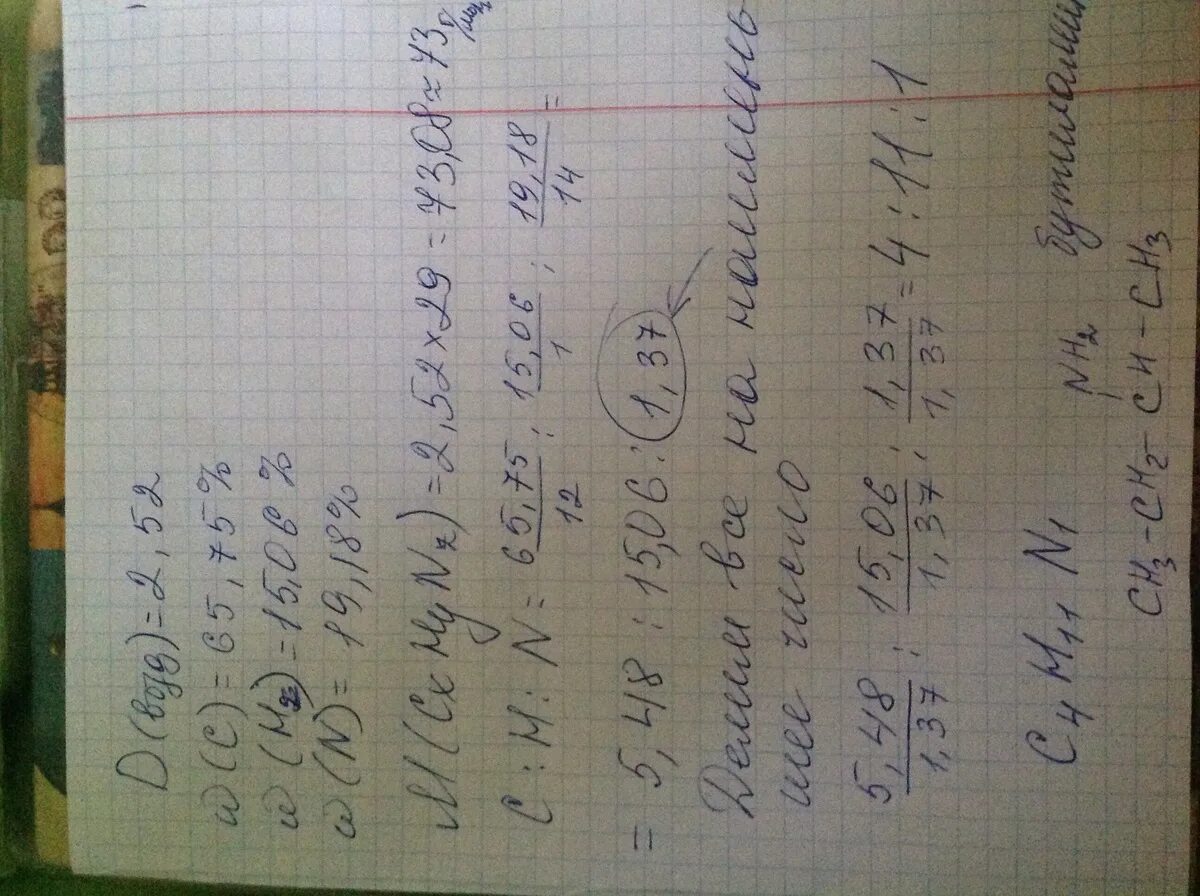 D(возд) = 2,52
ω(C) = 65,75%
ω(H₂) = 15,06%
ω(N) = 19,18%
M(CxHyNz) = 2,52 × 29 = 73,08 ≈ 73 г/моль
C : H : N = 65,75/12 : 15,06/1 : 19,18/14 =
= 5,48 : 15,06 : 1,37
Делим все на наимень
шее число
5,48/1,37 : 15,06/1,37 : 1,37/1,37 = 4 : 11 : 1
C₄H₁₁N₁ NH₂ бутиламин
CH₃-CH₂-CH-CH₃